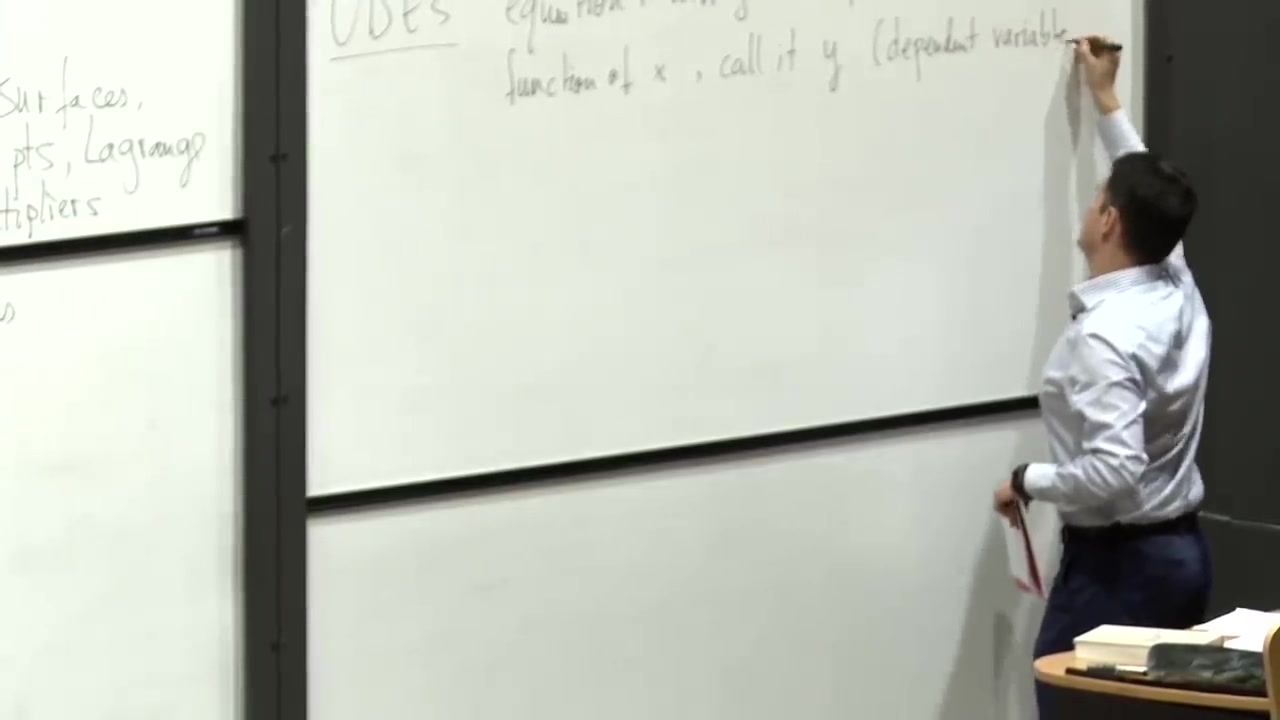 surfaces,
pts, Lagrange
tipliers
s
ODEs
function of x, call it y (dependent variable